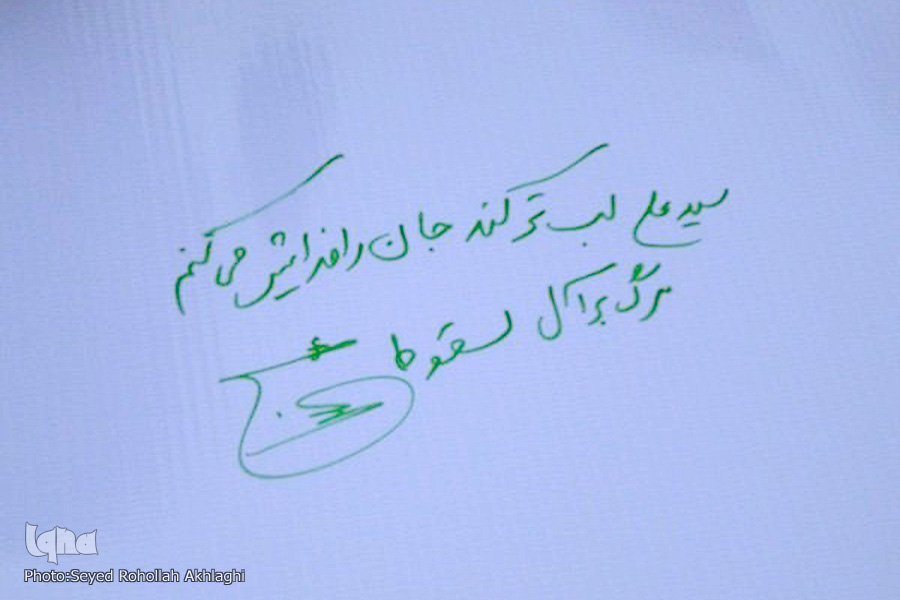 سید علی لب تر کند جان را فدایش می کنم
مرگ بر آل سقوط
Iqna
Photo:Seyed Rohollah Akhlaghi